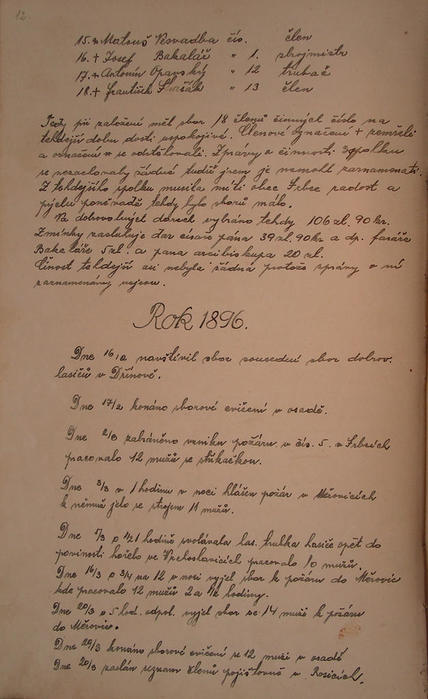 12
15. " Matouš Nesvadba čís. člen
16. + Josef Bakalář " 1. zbrojmistr
17. " Antonín Opavský " 12 trubač
18. + František " 13 člen
Tedy při založení měl sbor 18 členů činných číslo na
tehdejší dobu dosti uspokojivé. Členové označení + zemřeli
a označení " se odstěhovali. Zprávy o činnosti spolku
se nezachovaly žádné tudíž jsem je nemohl zaznamenati.
Z tehdejšího spolku musila míti obec radost a
pýchu poněvadž tehdy bylo sborů málo.
Na dobrovolných dárcích vybráno tehdy 106 zl. 90 kr.
Zmínky zasluhuje dar císaře pána 39 zl. 90 kr a dp. faráře
Bakaláře 5 zl. a pana arcibiskupa 20 zl.
Činost tehdejší asi nebyla žádná protože zprávy o ní
zaznamenány nejsou.
Rok 1896.
Dne 16/2 navštívil sbor sousední sbor dobrov.
hasičů v Dřínově.
Dne 17/2 konáno sborové cvičení v osadě.
Dne 2/3 zabráněno vzniku požáru v čís. 5. v
pracovalo 12 mužů se stříkačkou.
Dne 3/3 v 1 hodinu v noci hlášen požár v Měrovicích
k němuž jelo se strojem 11 mužů.
Dne 7/3 o 1/2 1 hodině svolávala has. trubka hasiče opět do
povinosti hořelo ve Vrchoslavicích pracovalo 10 mužů.
Dne 16/3 o 3/4 na 12 v noci vyjel sbor k požáru do Měrovic
kde pracovalo 12 mužů 2 a 1/2 hodiny.
Dne 20/3 o 5 hod. odpol. vyjel sbor se 14 muži k požáru
do Měrovic.
Dne konáno sborové cvičení se 12 muži v osadě
Dne 20/3 zaslán seznam členů pojišťovně v Kosicích.